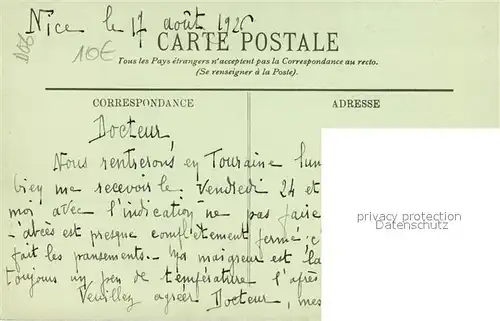 Nice le 17 août 1926
D06
10€
CARTE POSTALE
Tous les Pays étrangers n'acceptent pas la Correspondance au recto.
(Se renseigner à la Poste).
CORRESPONDANCE
ADRESSE
Docteur
Nous rentrerons en Touraine lun
bien me recevoir le Vendredi 24 et
moi avec l'indication ne pas faire
abcès est presque complètement fermé
fait les pansements. Ma maigreur est la
toujours un peu de température l'après
Veuillez agréer Docteur, mes
privacy protection
Datenschutz